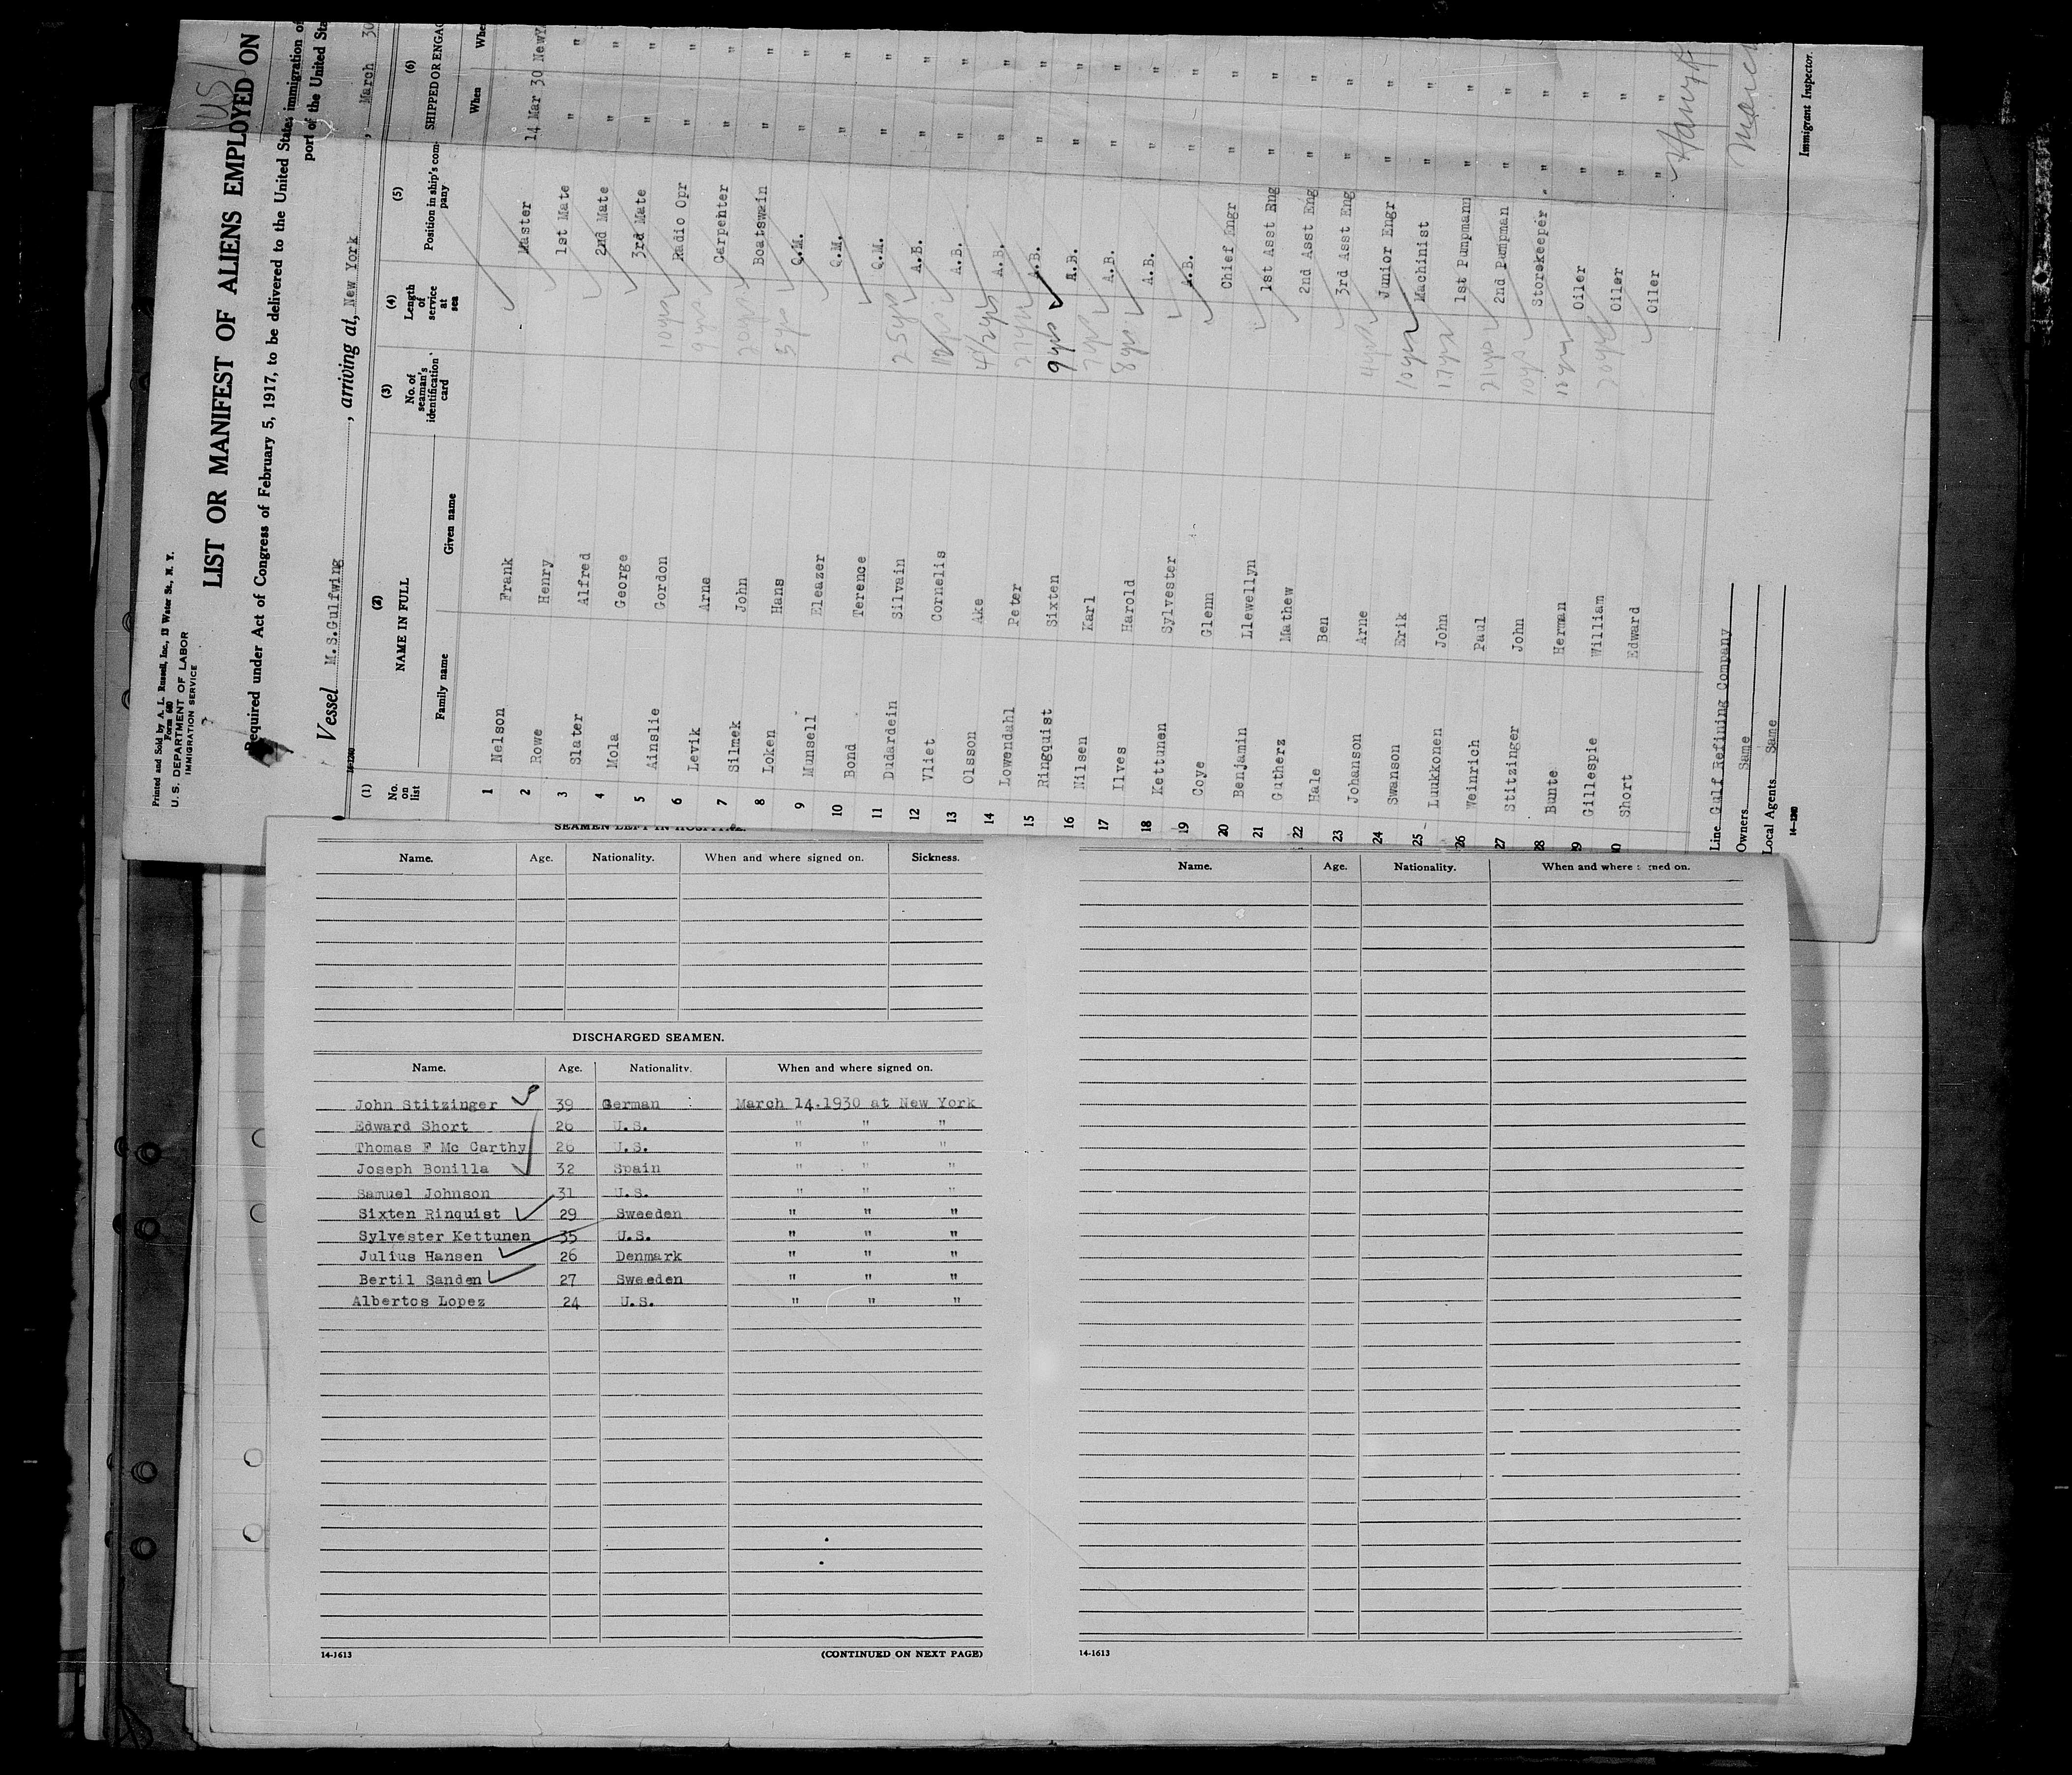 Printed and Sold by A. L. Russell, Inc., 13 Water St., N. Y.
Form 680
U. S. DEPARTMENT OF LABOR
IMMIGRATION SERVICE
LIST OR MANIFEST OF ALIENS EMPLOYED ON
Required under Act of Congress of February 5, 1917, to be delivered to the United States immigration
port of the United
Vessel M.S.Gulfwing, arriving at, New York, March 30
(1) (2) (3) (4) (5) (6)
No. on list NAME IN FULL No. of seaman's identification card Length of service at sea Position in ship's company SHIPPED OR
Family name Given name When
1 Nelson Frank Master 14 Mar 30
2 Rowe Henry 1st Mate " "
3 Slater Alfred 2nd Mate " "
4 Mola George 3rd Mate " "
5 Ainslie Gordon 10yrs Radio Opr " "
6 Levik Arne 9 yrs Carpenter " "
7 Silmek John 20yrs Boatswain " "
8 Loken Hans 5 yrs Q.M. " "
9 Munsell Eleazer Q.M. " "
10 Bond Terence Q.M. " "
11 Dudardein Silvain 25yrs A.B. " "
12 Vliet Cornelis A.B. " "
13 Olsson Ake 4 1/2 yrs A.B. " "
14 Lowendahl Peter 27yrs A.B. " "
15 Ringquist Sixten 9 yrs A.B. " "
16 Nilsen Karl 7yrs A.B. " "
17 Ilves Harold 8yrs A.B. " "
18 Kettunen Sylvester A.B. " "
19 Coye Glenn Chief Engr " "
20 Benjamin Llewellyn 1st Asst Eng " "
21 Gutherz Mathew 2nd Asst Eng " "
22 Hale Ben 3rd Asst Eng " "
23 Johanson Arne 4yrs Junior Engr " "
24 Swanson Erik 10yrs Machinist " "
25 Luukkonen John 17yrs 1st Pumpmann " "
26 Weinrich Paul 21yrs 2nd Pumpman " "
27 Stitzinger John 10yrs Storekeeper " "
28 Bunte Herman Oiler " "
29 Gillespie William 20yrs Oiler " "
30 Short Edward Oiler " "
Line Gulf Refining Company
Owners Same
Local Agents Same
14—1240
Immigrant Inspector.
SEAMEN LEFT IN HOSPITAL.
Name. Age. Nationality. When and where signed on. Sickness.
DISCHARGED SEAMEN.
Name. Age. Nationality. When and where signed on.
John Stitzinger 39 German March 14.1930 at New York
Edward Short 26 U.S. " " "
Thomas F Mc Carthy 26 U.S. " " "
Joseph Bonilla 32 Spain " " "
Samuel Johnson 31 U.S. " " "
Sixten Rinquist 29 Sweeden " " "
Sylvester Kettunen 35 U.S. " " "
Julius Hansen 26 Denmark " " "
Bertil Sanden 27 Sweeden " " "
Albertos Lopez 24 U.S. " " "
14-1613
(CONTINUED ON NEXT PAGE)
Name. Age. Nationality. When and where signed on.
14-1613